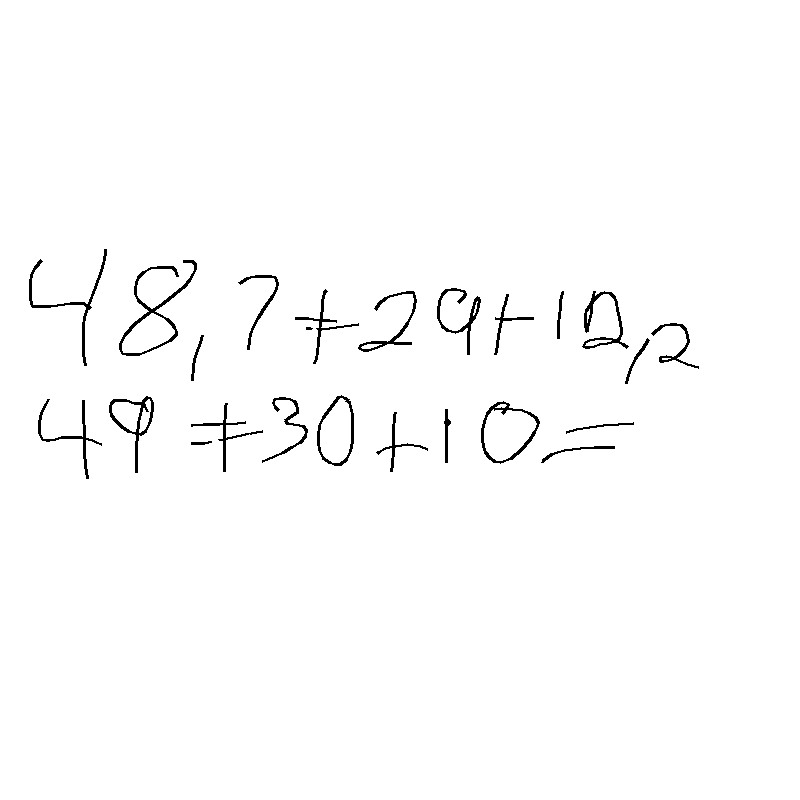 48,7+29+12,2
49+30+10=